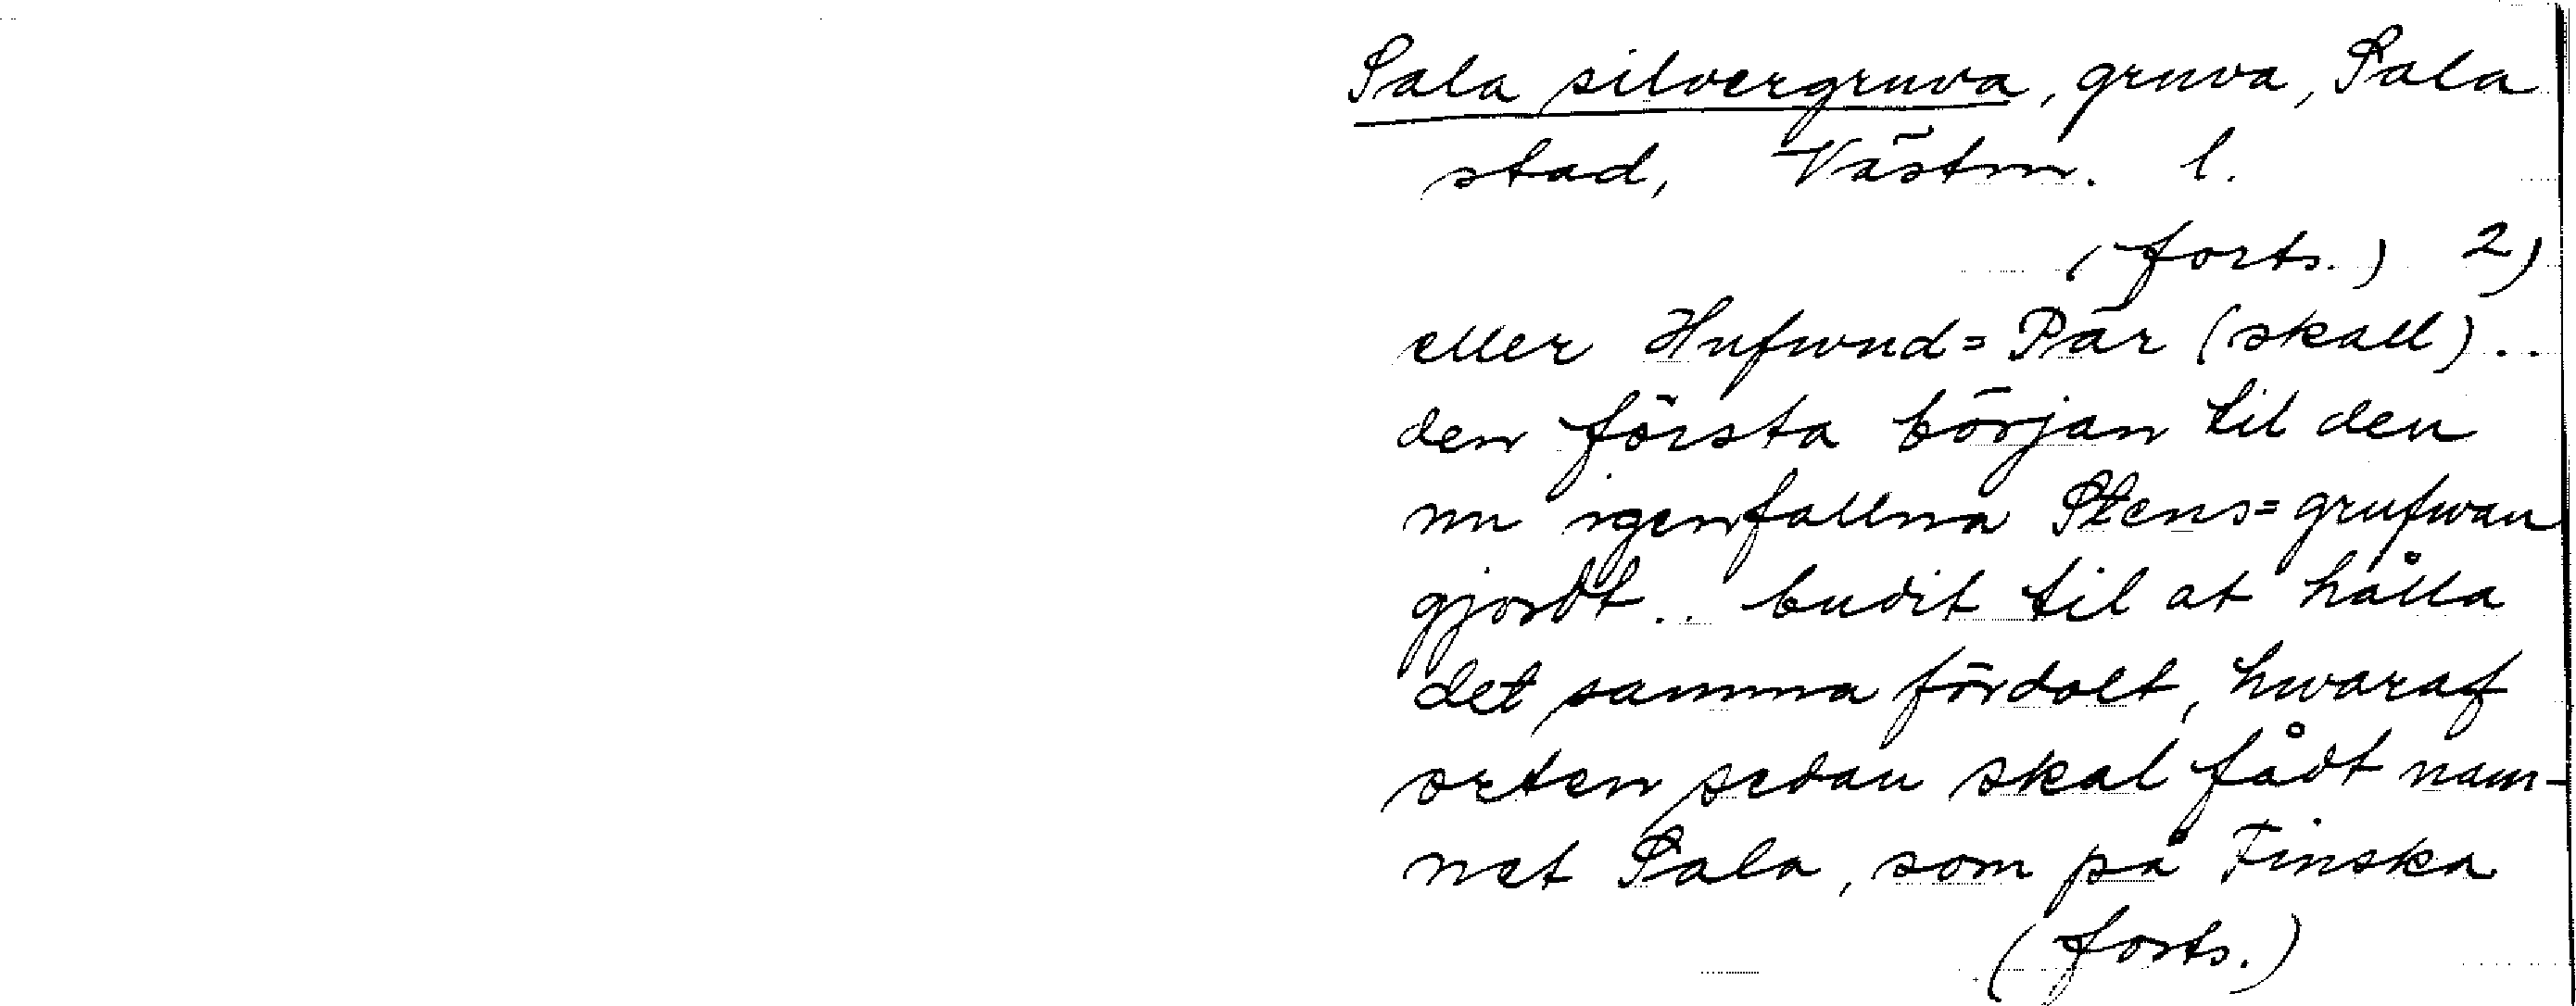 Sala silvergruva, gruva, Sala
stad, Västm. l.
(forts.) 2)
eller Hufwud=Pär (skall)..
den första början til den
nu igenfallna Stens=grufwan
gjordt.. budit til at hålla
det samma fördolt, hwaraf
orten sedan skal fådt nam-
net Sala, som på Finska
(forts.)